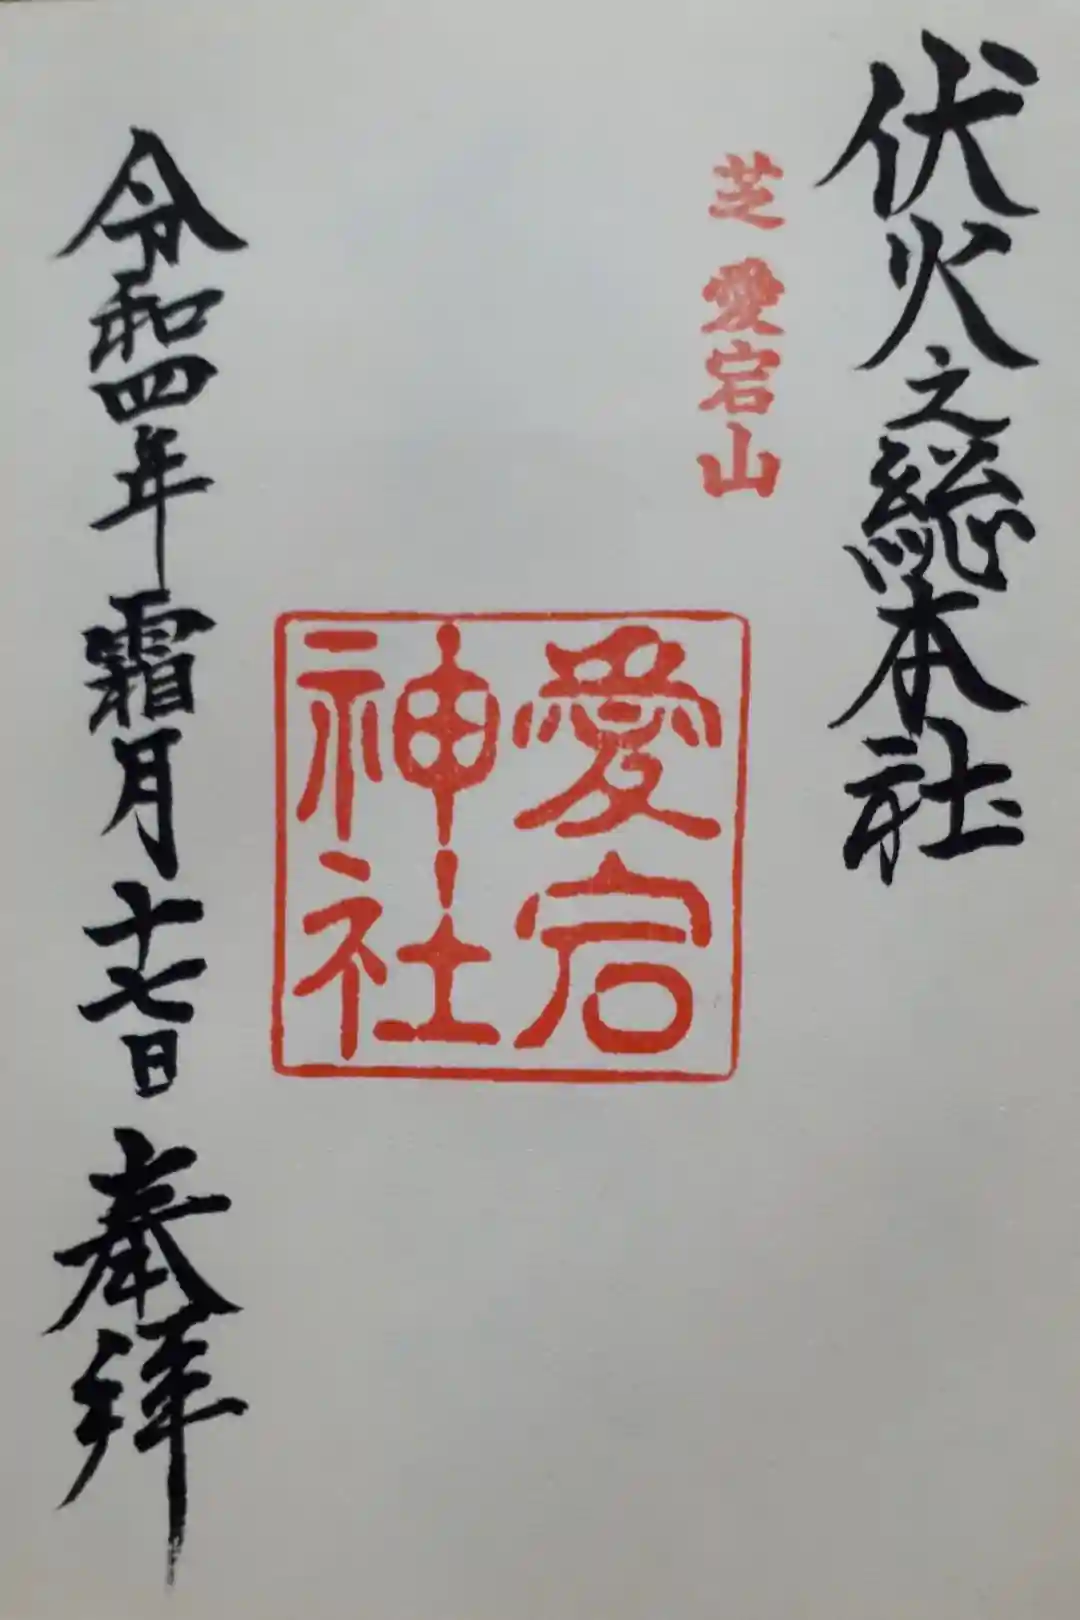 伏火之総本社
芝 愛宕山
愛宕
神社
令和四年 霜月 十七日 奉拝